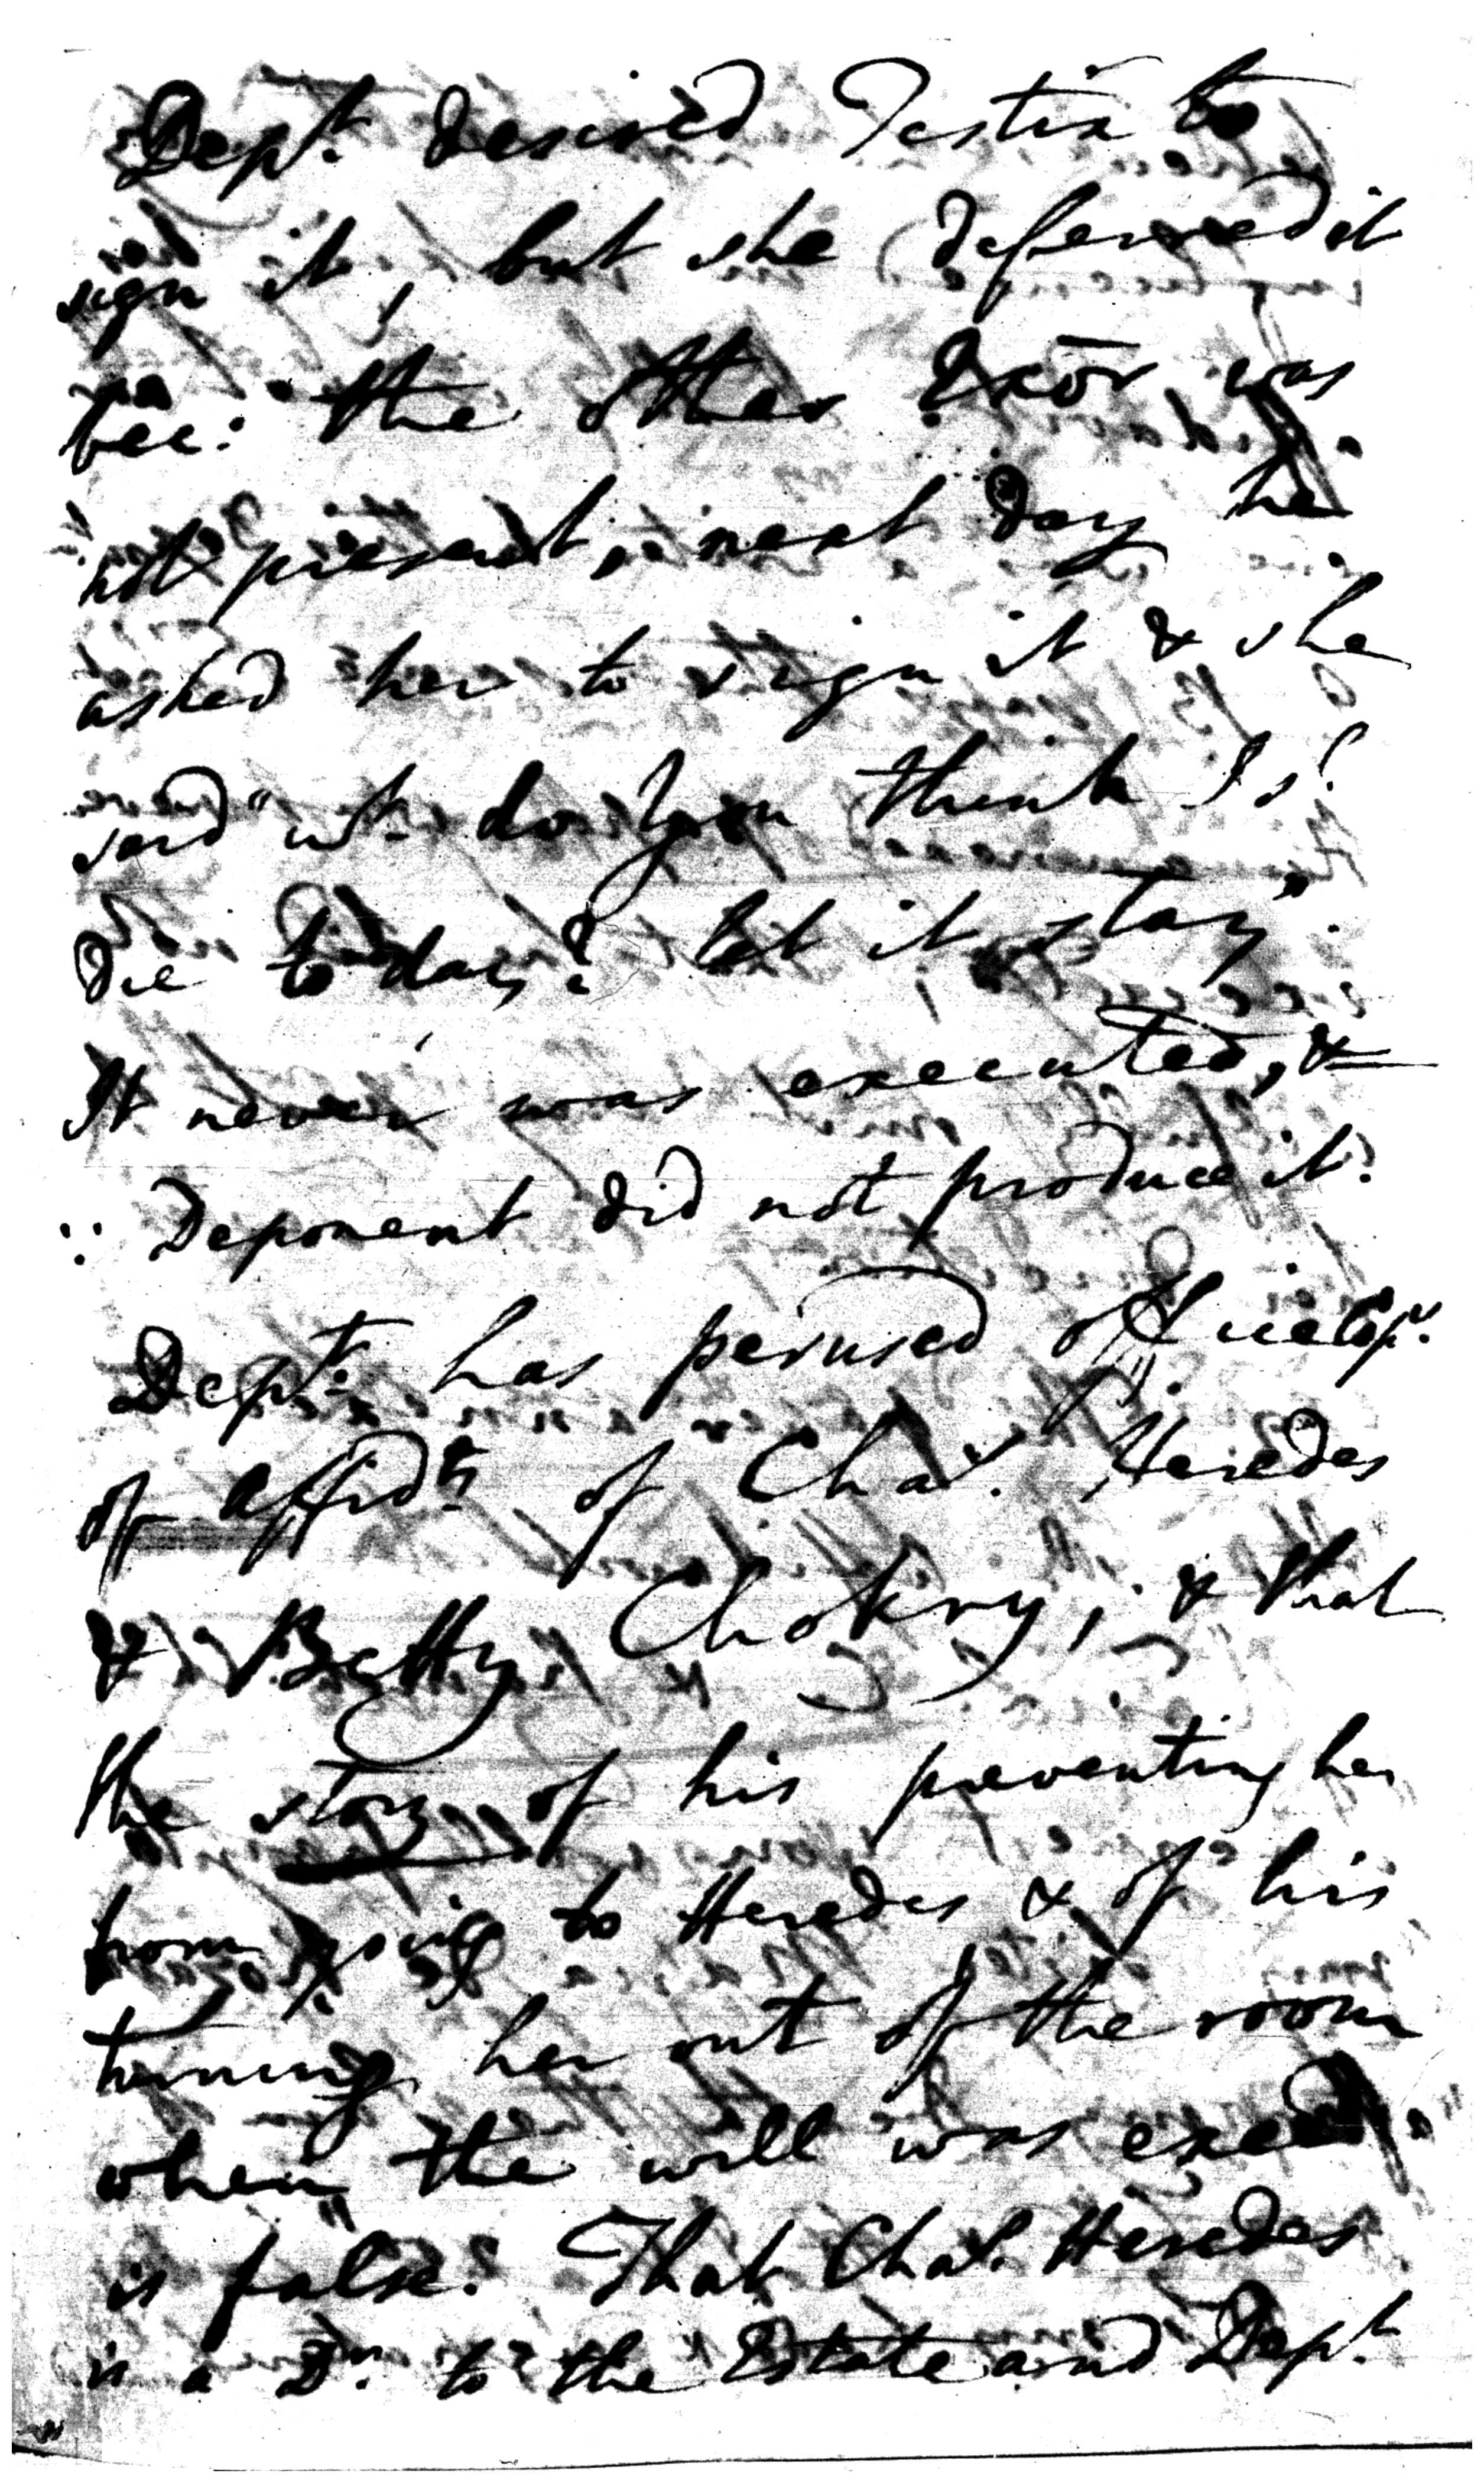 Dept. desired Testix to
sign it, but she deferred it
bec: the other Exōr was
not present, next day he
asked her to sign it & she
said "wt. do you think I s.d
die to day? let it stay".
It never was executed, &
∵ Deponent did not produce it.
Dept. has perused off. Copy.
of affidts. of Chas. Heredes
& Betty Chokry; & that
the story of his preventing her
from going to Heredes & of his
turning her out of the room
when the will was exed
is false. That Chas. Heredes
is a Dr. to the Estate and Dept.